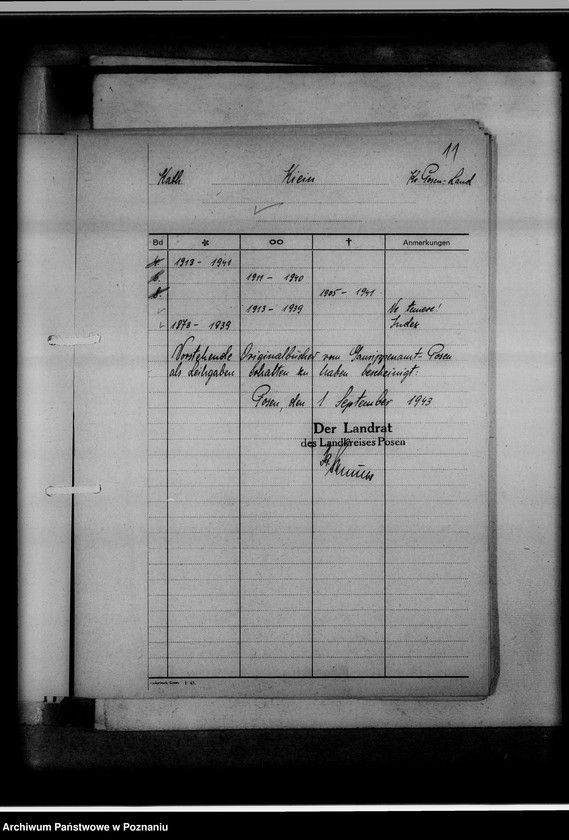 11
Kath. Kiein Kr. Posen-Land
Bd * ∞ † Anmerkungen
1913 - 1941
1911 - 1940
1905 - 1941
1913 - 1939 Ne temere!
1873 - 1939 Index
Vorstehende Originalbücher vom Gausippenamt Posen
als Leihgaben erhalten zu haben bescheinigt:
Posen, den 1 September 1943
Der Landrat
des Landkreises Posen
Archiwum Państwowe w Poznaniu